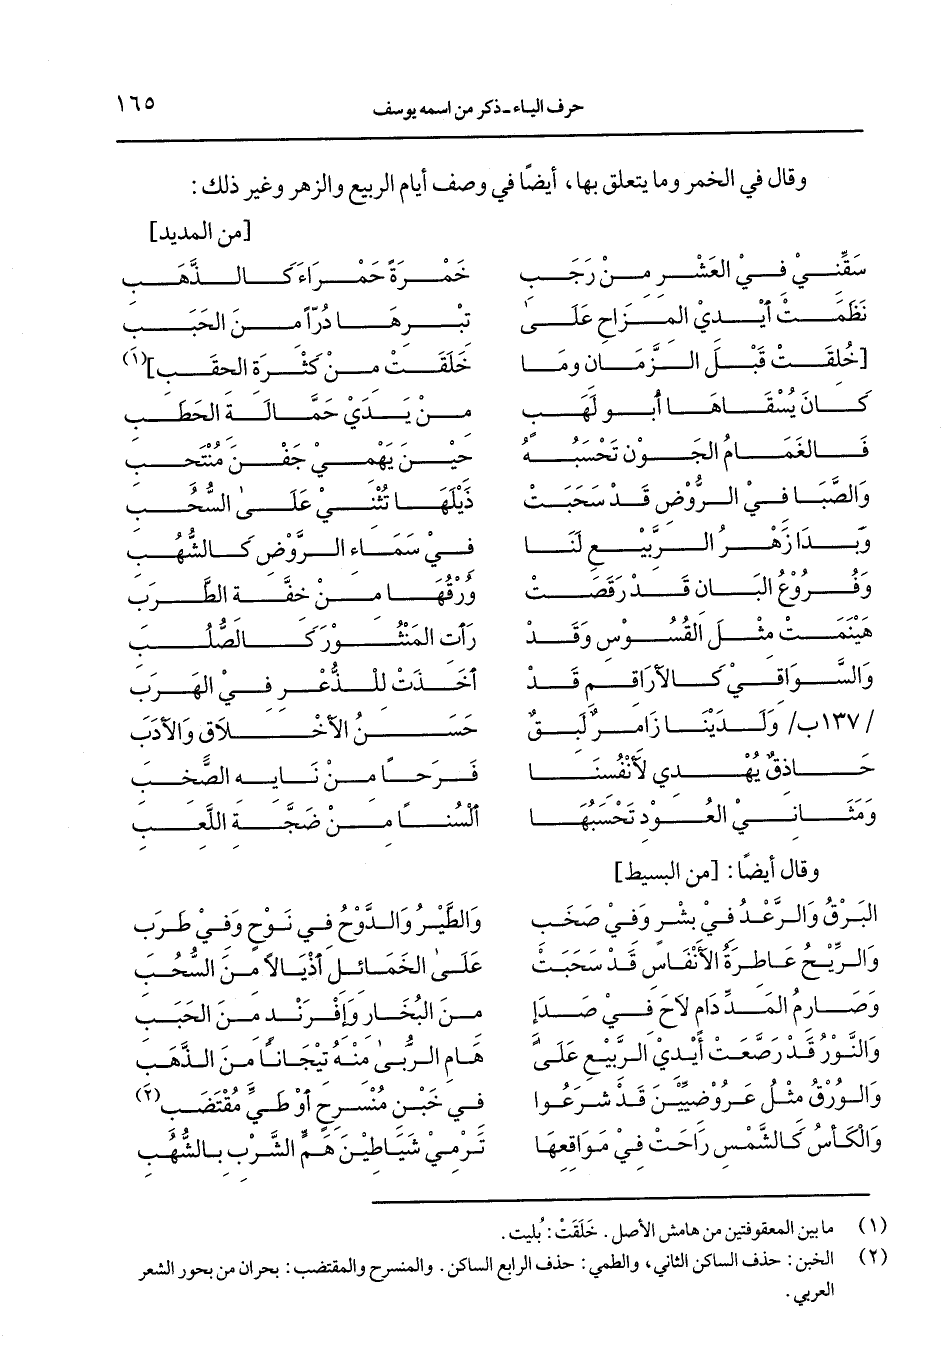 حرف الياء ـ ذكر من اسمه يوسف ١٦٥
وقال في الخمر وما يتعلق بها، أيضًا في وصف أيام الربيع والزهر وغير ذلك:
[من المديد]
سَقِّنِيْ فِيْ العَشْرِ مِنْ رَجَبِ خَمْرَةً حَمْرَاءَ كَالذَّهَبِ
نَظَمَتْ أَيْدِي المِزَاجِ عَلَىٰ تِبْرِهَا دُرّاً مِنَ الحَبَبِ
[خُلِقَتْ قَبْلَ الزَّمَانِ ومَا خَلَقَتْ مِنْ كَثْرَةِ الحِقَبِ](١)
كَانَ يُسْقَاهَا أَبُو لَهَبٍ مِنْ يَدَيْ حَمَّالَةِ الحَطَبِ
فَالغَمَامُ الجَوْنُ تَحْسَبُهُ حِيْنَ يَهْمِيْ جَفْنَ مُنْتَحِبِ
وَالصَّبَا فِيْ الرَّوْضِ قَدْ سَحَبَتْ ذَيْلَهَا تُثْنِيْ عَلَىٰ السُّحُبِ
وَبَدَا زَهْرُ الرَّبِيْعِ لَنَا فِيْ سَمَاءِ الرَّوْضِ كَالشُّهُبِ
وَفُرُوْعُ البَانِ قَدْ رَقَصَتْ وُرْقُهَا مِنْ خِفَّةِ الطَّرَبِ
هَيْنَمَتْ مِثْلَ القُسُوْسِ وَقَدْ رَأَتِ المَنْثُوْرَ كَالصُّلُبِ
وَالسَّوَاقِيْ كَالأَرَاقِمِ قَدْ أَخَذَتْ لِلذُّعْرِ فِيْ الهَرَبِ
/١٣٧ب/ وَلَدَيْنَا زَامِرٌ لَبِقٌ حَسَنُ الأَخْلَاقِ وَالأَدَبَ
حَاذِقٌ يُهْدِي لأَنْفُسِنَا فَرَحاً مِنْ نَايِهِ الصَّخِبِ
وَمَثَانِيْ العُوْدِ تَحْسَبُهَا أَلْسُناً مِنْ ضَجَّةِ اللَّعِبِ
وقال أيضًا: [من البسيط]
البَرْقُ وَالرَّعْدُ فِيْ بِشْرٍ وَفِيْ صَخَبِ وَالطَّيْرُ وَالدَّوْحُ فِي نَوْحٍ وَفِيْ طَرَبِ
وَالرِّيْحُ عَاطِرَةُ الأَنْفَاسِ قَدْ سَحَبَتْ عَلَىٰ الخَمَائِلِ أَذْيَالاً مِنَ السُّحُبِ
وَصَارِمُ المَدِّ دَامٍ لاَحَ فِيْ صَدَإِ مِنَ البُخَارِ وَإِفْرِنْدٍ مِنَ الحَبَبِ
وَالنَّوْرُ قَدْ رَصَّعَتْ أَيْدِيْ الرَّبِيْعِ عَلَىٰ هَامِ الرُّبَىٰ مِنْهُ تِيْجَاناً مِنَ الذَّهَبِ
وَالوُرْقُ مِثْلُ عَرُوْضِيِّيْنَ قَدْ شَرَعُوا فِي خَبْنِ مُنْسَرِحٍ أَوْ طَيِّ مُقْتَضَبِ(٢)
وَالكَأْسُ كَالشَّمْسِ رَاحَتْ فِيْ مَوَاقِعِهَا تَرْمِيْ شَيَاطِيْنَ هَمِّ الشَّرْبِ بِالشُّهُبِ
(١) ما بين المعقوفتين من هامش الأصل. خَلَقَتْ: بُليت.
(٢) الخبن: حذف الساكن الثاني، والطي: حذف الرابع الساكن. والمنسرح والمقتضب: بحران من بحور الشعر
العربي.